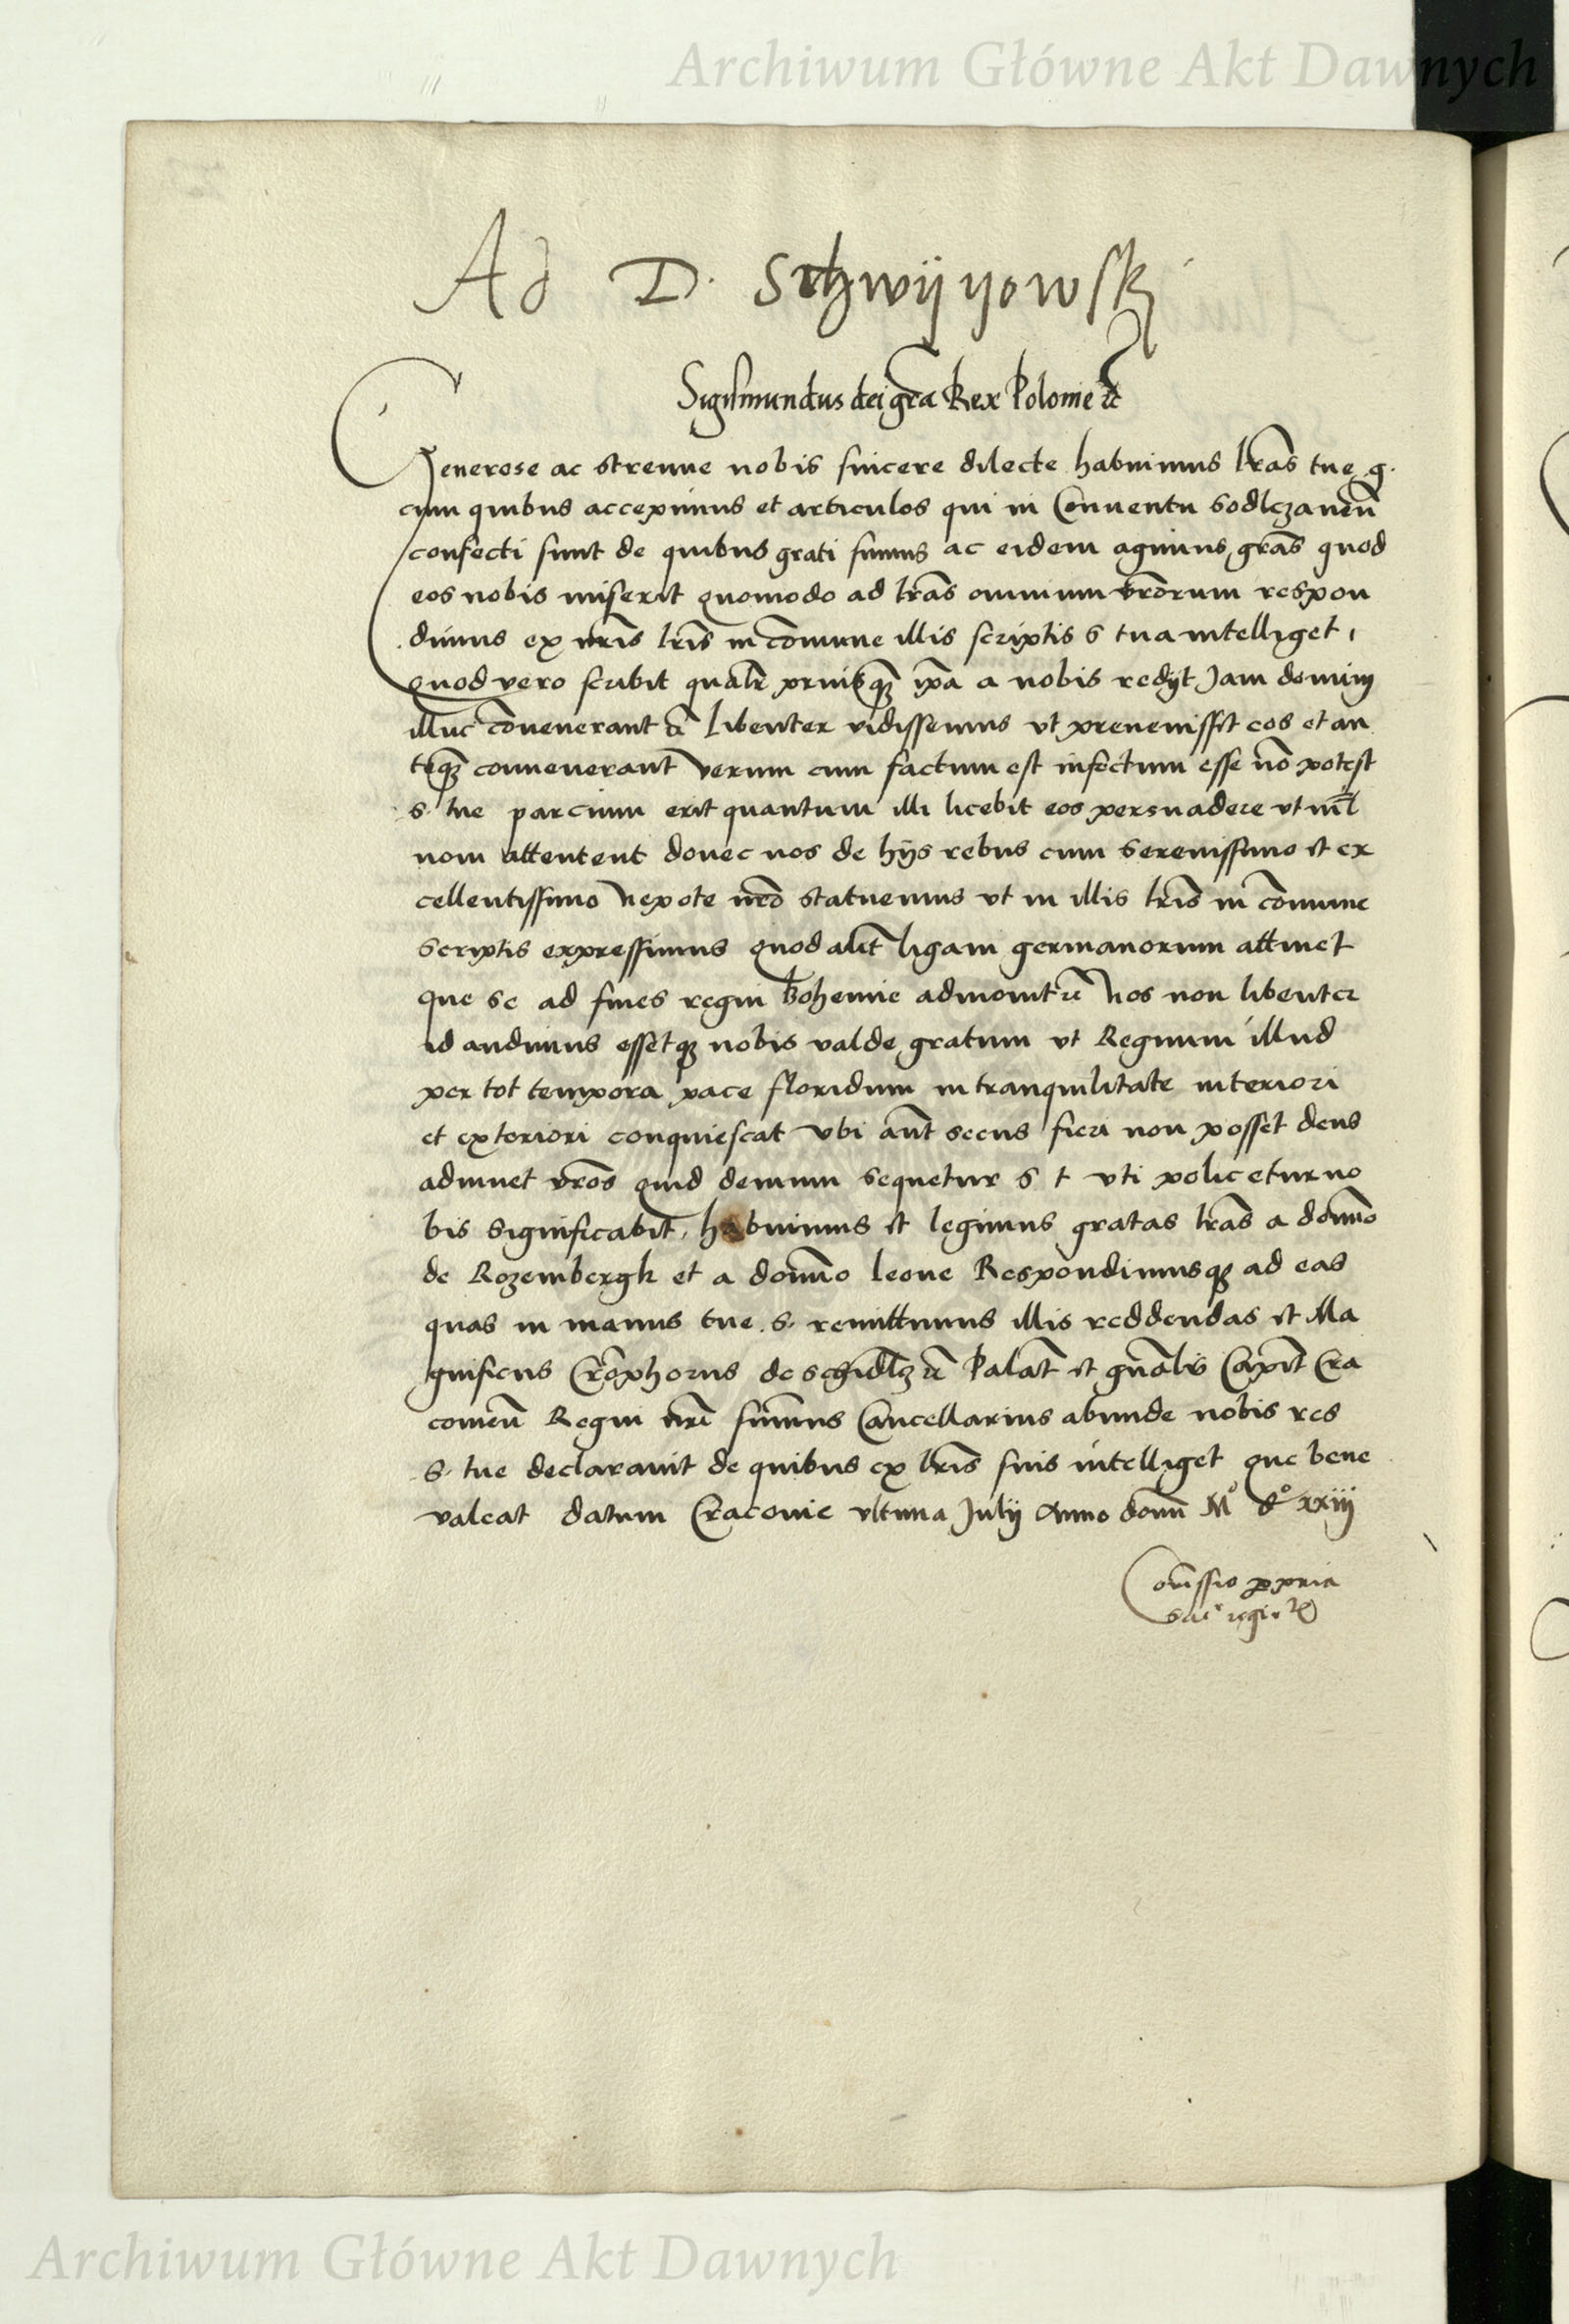 Archiwum Główne Akt Dawnych
Ad D. Schwijyowsky
Sigismundus dei gra Rex Polonie
Generose ac strenue nobis sincere dilecte habuimus lras tue g.
cum quibus accepimus et articulos qui in Conventu Sodlczanen
confecti sunt de quibus grati sumus ac eidem agimus gras quod
eos nobis miserit quomodo ad lras omnium vrorum respon
dimus ex nris lris in comune illis scriptis S tua intelliget,
quod vero scribit qualr priusq ipa a nobis redijt Jam dominj
illuc convenerant Libenter vidissemus ut prevenisset eos et an
teq convenerant verum cum factum est infectum esse no potest
S. tue parcium erit quantum illi licebit eos persuadere ut nil
novi attentent donec nos de hijs rebus cum Serenissimo et ex
cellentissimo Nepote nro statuemus ut in illis lris in comune
Scriptis expressimus quod aut ligam germanorum attinet
que se ad fines regni Bohemie admovit Nos non libenter
id audimus essetq nobis valde gratum ut Regnum illud
per tot tempora pace floridum in tranquilitate interiori
et exteriori conquiescat vbi aut secus fieri non posset deus
adiuvet vros quid demum sequetur S t uti policetur no
bis significabit, habuimus et legimus gratas lras a domno
de Rozembergk et a domno leone Respondimusq ad eas
quas in manus tue S. remittimus illis reddendas et Ma
gnificus Crophorus de Schidlz Palat et gnalis Capit Cra
covien Regni nri summus Cancellarius abunde nobis res
S. tue declaravit de quibus ex lris suis intelliget que bene
valeat datum Cracovie ultima Julij Anno domi Mº dº xxiij
Comissio ppria
Sac regie
Archiwum Główne Akt Dawnych